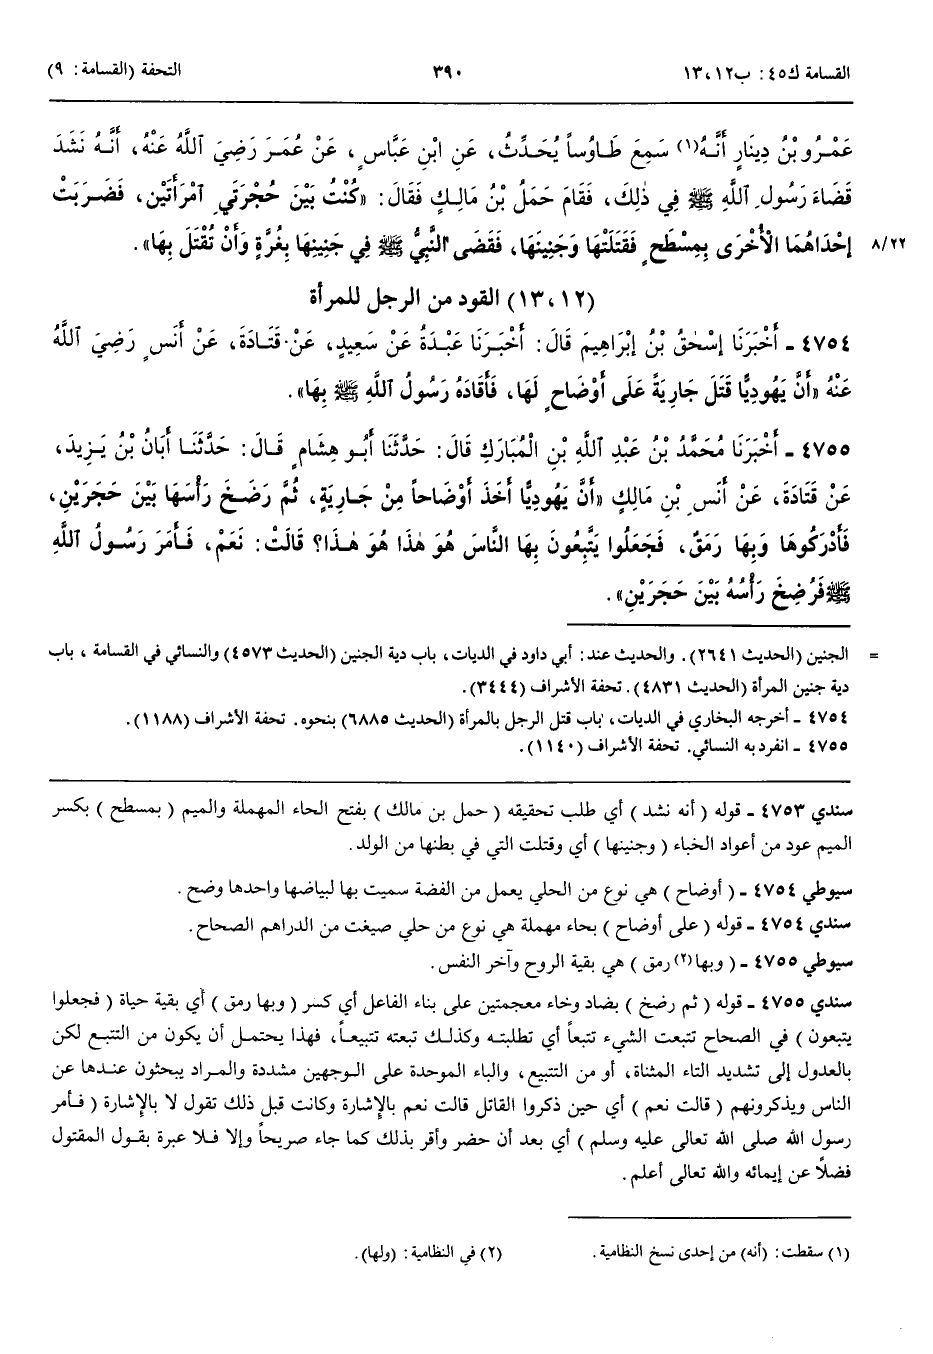 القسامة ك٤٥: ب١٢،١٣
٣٩٠
التحفة (القسامة: ٩)
عَمْرُو بْنُ دِينَارٍ أَنَّهُ(١) سَمِعَ طَاوُساً يُحَدِّثُ، عَنِ ابْنِ عَبَّاسٍ، عَنْ عُمَرَ رَضِيَ اللَّهُ عَنْهُ، أَنَّهُ نَشَدَ
قَضَاءَ رَسُولِ اللَّهِ ﷺ فِي ذٰلِكَ، فَقَامَ حَمَلُ بْنُ مَالِكٍ فَقَالَ: «كُنْتُ بَيْنَ حُجْرَتَيِ امْرَأَتَيْنِ، فَضَرَبَتْ
إِحْدَاهُمَا الْأُخْرَى بِمِسْطَحٍ فَقَتَلَتْهَا وَجَنِينَهَا، فَقَضَى النَّبِيُّ ﷺ فِي جَنِينِهَا بِغُرَّةٍ وَأَنْ تُقْتَلَ بِهَا». ٨/٢٢
(١٢،١٣) القود من الرجل للمرأة
٤٧٥٤ ـ أَخْبَرَنَا إِسْحٰقُ بْنُ إِبْرَاهِيمَ قَالَ: أَخْبَرَنَا عَبْدَةُ عَنْ سَعِيدٍ، عَنْ قَتَادَةَ، عَنْ أَنَسٍ رَضِيَ اللَّهُ
عَنْهُ «أَنَّ يَهُودِيًّا قَتَلَ جَارِيَةً عَلَى أَوْضَاحٍ لَهَا، فَأَقَادَهُ رَسُولُ اللَّهِ ﷺ بِهَا».
٤٧٥٥ ـ أَخْبَرَنَا مُحَمَّدُ بْنُ عَبْدِ اللَّهِ بْنِ الْمُبَارَكِ قَالَ: حَدَّثَنَا أَبُو هِشَامٍ قَالَ: حَدَّثَنَا أَبَانُ بْنُ يَزِيدَ،
عَنْ قَتَادَةَ، عَنْ أَنَسِ بْنِ مَالِكٍ «أَنَّ يَهُودِيًّا أَخَذَ أَوْضَاحاً مِنْ جَارِيَةٍ، ثُمَّ رَضَخَ رَأْسَهَا بَيْنَ حَجَرَيْنِ،
فَأَدْرَكُوهَا وَبِهَا رَمَقٌ، فَجَعَلُوا يَتَّبِعُونَ بِهَا النَّاسَ هُوَ هٰذَا هُوَ هٰذَا؟ قَالَتْ: نَعَمْ، فَأَمَرَ رَسُولُ اللَّهِ
ﷺ فَرُضِخَ رَأْسُهُ بَيْنَ حَجَرَيْنِ».
= الجنين (الحديث ٢٦٤١). والحديث عند: أبي داود في الديات، باب دية الجنين (الحديث ٤٥٧٣) والنسائي في القسامة، باب
دية جنين المرأة (الحديث ٤٨٣١). تحفة الأشراف (٣٤٤٤).
٤٧٥٤ ـ أخرجه البخاري في الديات، باب قتل الرجل بالمرأة (الحديث ٦٨٨٥) بنحوه. تحفة الأشراف (١١٨٨).
٤٧٥٥ ـ انفرد به النسائي. تحفة الأشراف (١١٤٠).
سندي ٤٧٥٣ ـ قوله ( أنه نشد ) أي طلب تحقيقه ( حمل بن مالك ) بفتح الحاء المهملة والميم ( بمسطح ) بكسر
الميم عود من أعواد الخباء ( وجنينها ) أي وقتلت التي في بطنها من الولد.
سيوطي ٤٧٥٤ ـ ( أوضاح ) هي نوع من الحلي يعمل من الفضة سميت بها لبياضها واحدها وضح.
سندي ٤٧٥٤ ـ قوله ( على أوضاح ) بحاء مهملة هي نوع من حلي صيغت من الدراهم الصحاح.
سيوطي ٤٧٥٥ ـ ( وبها(٢) رمق ) هي بقية الروح وآخر النفس.
سندي ٤٧٥٥ ـ قوله ( ثم رضخ ) بضاد وخاء معجمتين على بناء الفاعل أي كسر ( وبها رمق ) أي بقية حياة ( فجعلوا
يتبعون ) في الصحاح تتبعت الشيء تتبعاً أي تطلبته وكذلك تبعته تتبيعاً، فهذا يحتمل أن يكون من التتبع لكن
بالعدول إلى تشديد التاء المثناة، أو من التتبيع، والباء الموحدة على الوجهين مشددة والمراد يبحثون عندها عن
الناس ويذكرونهم ( قالت نعم ) أي حين ذكروا القاتل قالت نعم بالإشارة وكانت قبل ذلك تقول لا بالإشارة ( فأمر
رسول الله صلى الله تعالى عليه وسلم ) أي بعد أن حضر وأقر بذلك كما جاء صريحاً وإلا فلا عبرة بقول المقتول
فضلاً عن إيمائه والله تعالى أعلم.
(١) سقطت: (أنه) من إحدى نسخ النظامية.
(٢) في النظامية: (ولها).